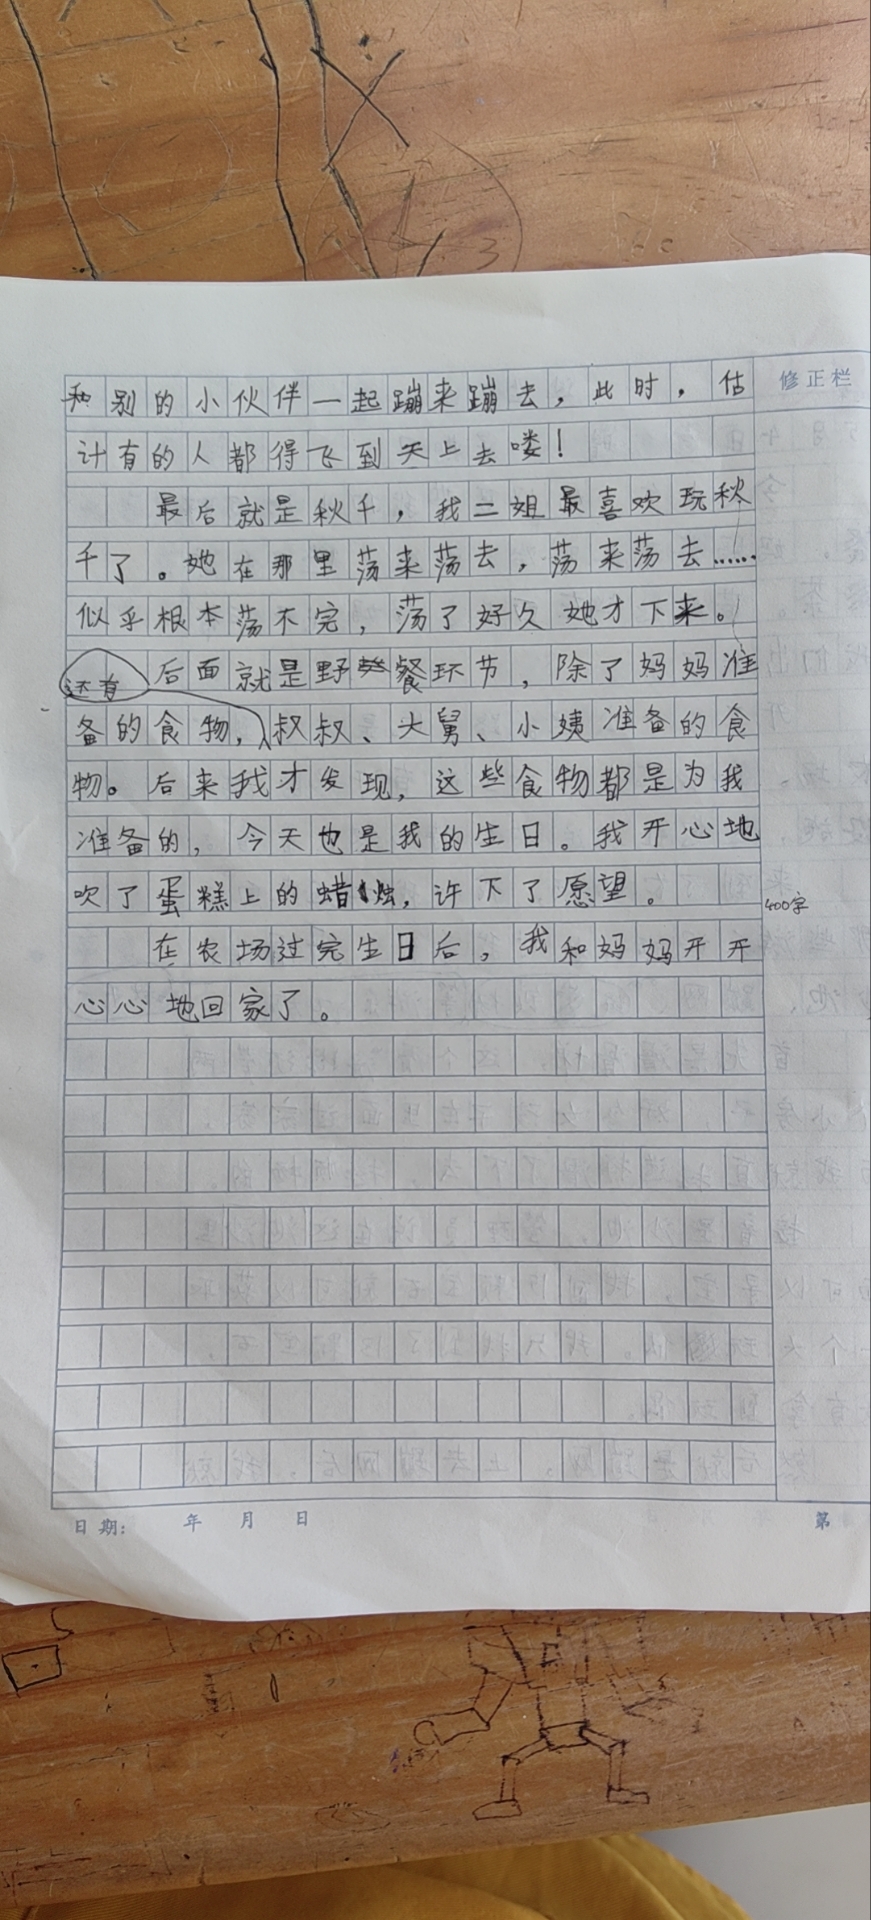 和别的小伙伴一起蹦来蹦去，此时，估
修正栏
计有的人都得飞到天上去喽！
最后就是秋千，我二姐最喜欢玩秋
千了。她在那里荡来荡去，荡来荡去……
似乎根本荡不完，荡了好久她才下来。
后面就是野餐环节，除了妈妈准
还有
备的食物，叔叔、大舅、小姨准备的食
物。后来我才发现，这些食物都是为我
准备的，今天也是我的生日。我开心地
吹了蛋糕上的蜡烛，许下了愿望。
400字
在农场过完生日后，我和妈妈开开
心心地回家了。
日期： 年 月 日
第